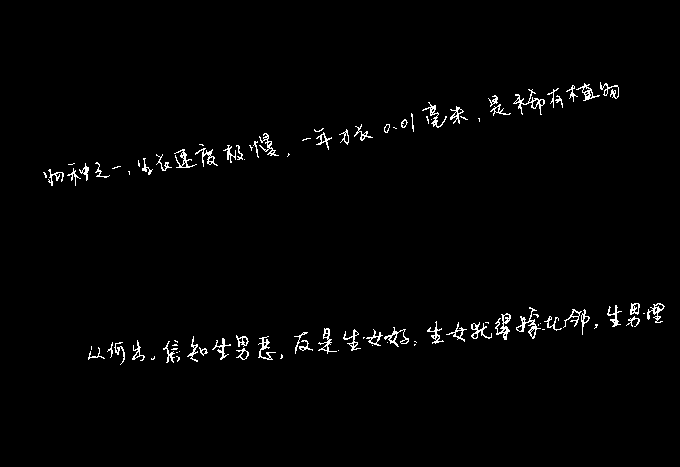 物种之一,生长速度极慢,一年才长0.01毫米,是稀有植物
从何出。信知生男恶,反是生女好。生女犹得嫁比邻,生男埋